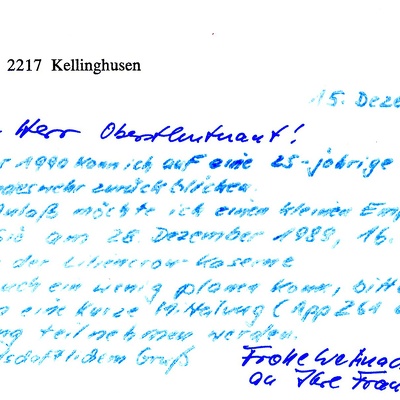 2217 Kellinghusen
15. Deze
Herr Oberstleutnant!
1990 kann ich auf eine 25-jährige
deswehr zurückblicken.
Anlaß möchte ich einen kleinen Emp
am 28. Dezember 1989, 16.
der Liliencron-Kaserne
uch ein wenig planen kann, bitte
eine kurze Mitteilung (App 261
teilnehmen werden.
dschaftlichem Gruß
Frohe Weihnac
an Ihre Frau